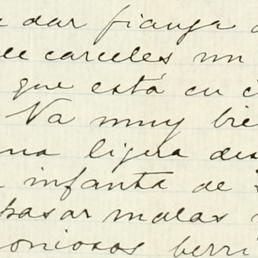 dar fianza
de carceles un
que está en c
Va muy bie
na ligera des
infanta de
pasar malas
oniosos berri